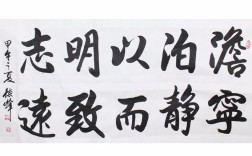 澹泊以明志
寧静而致遠
甲午之夏